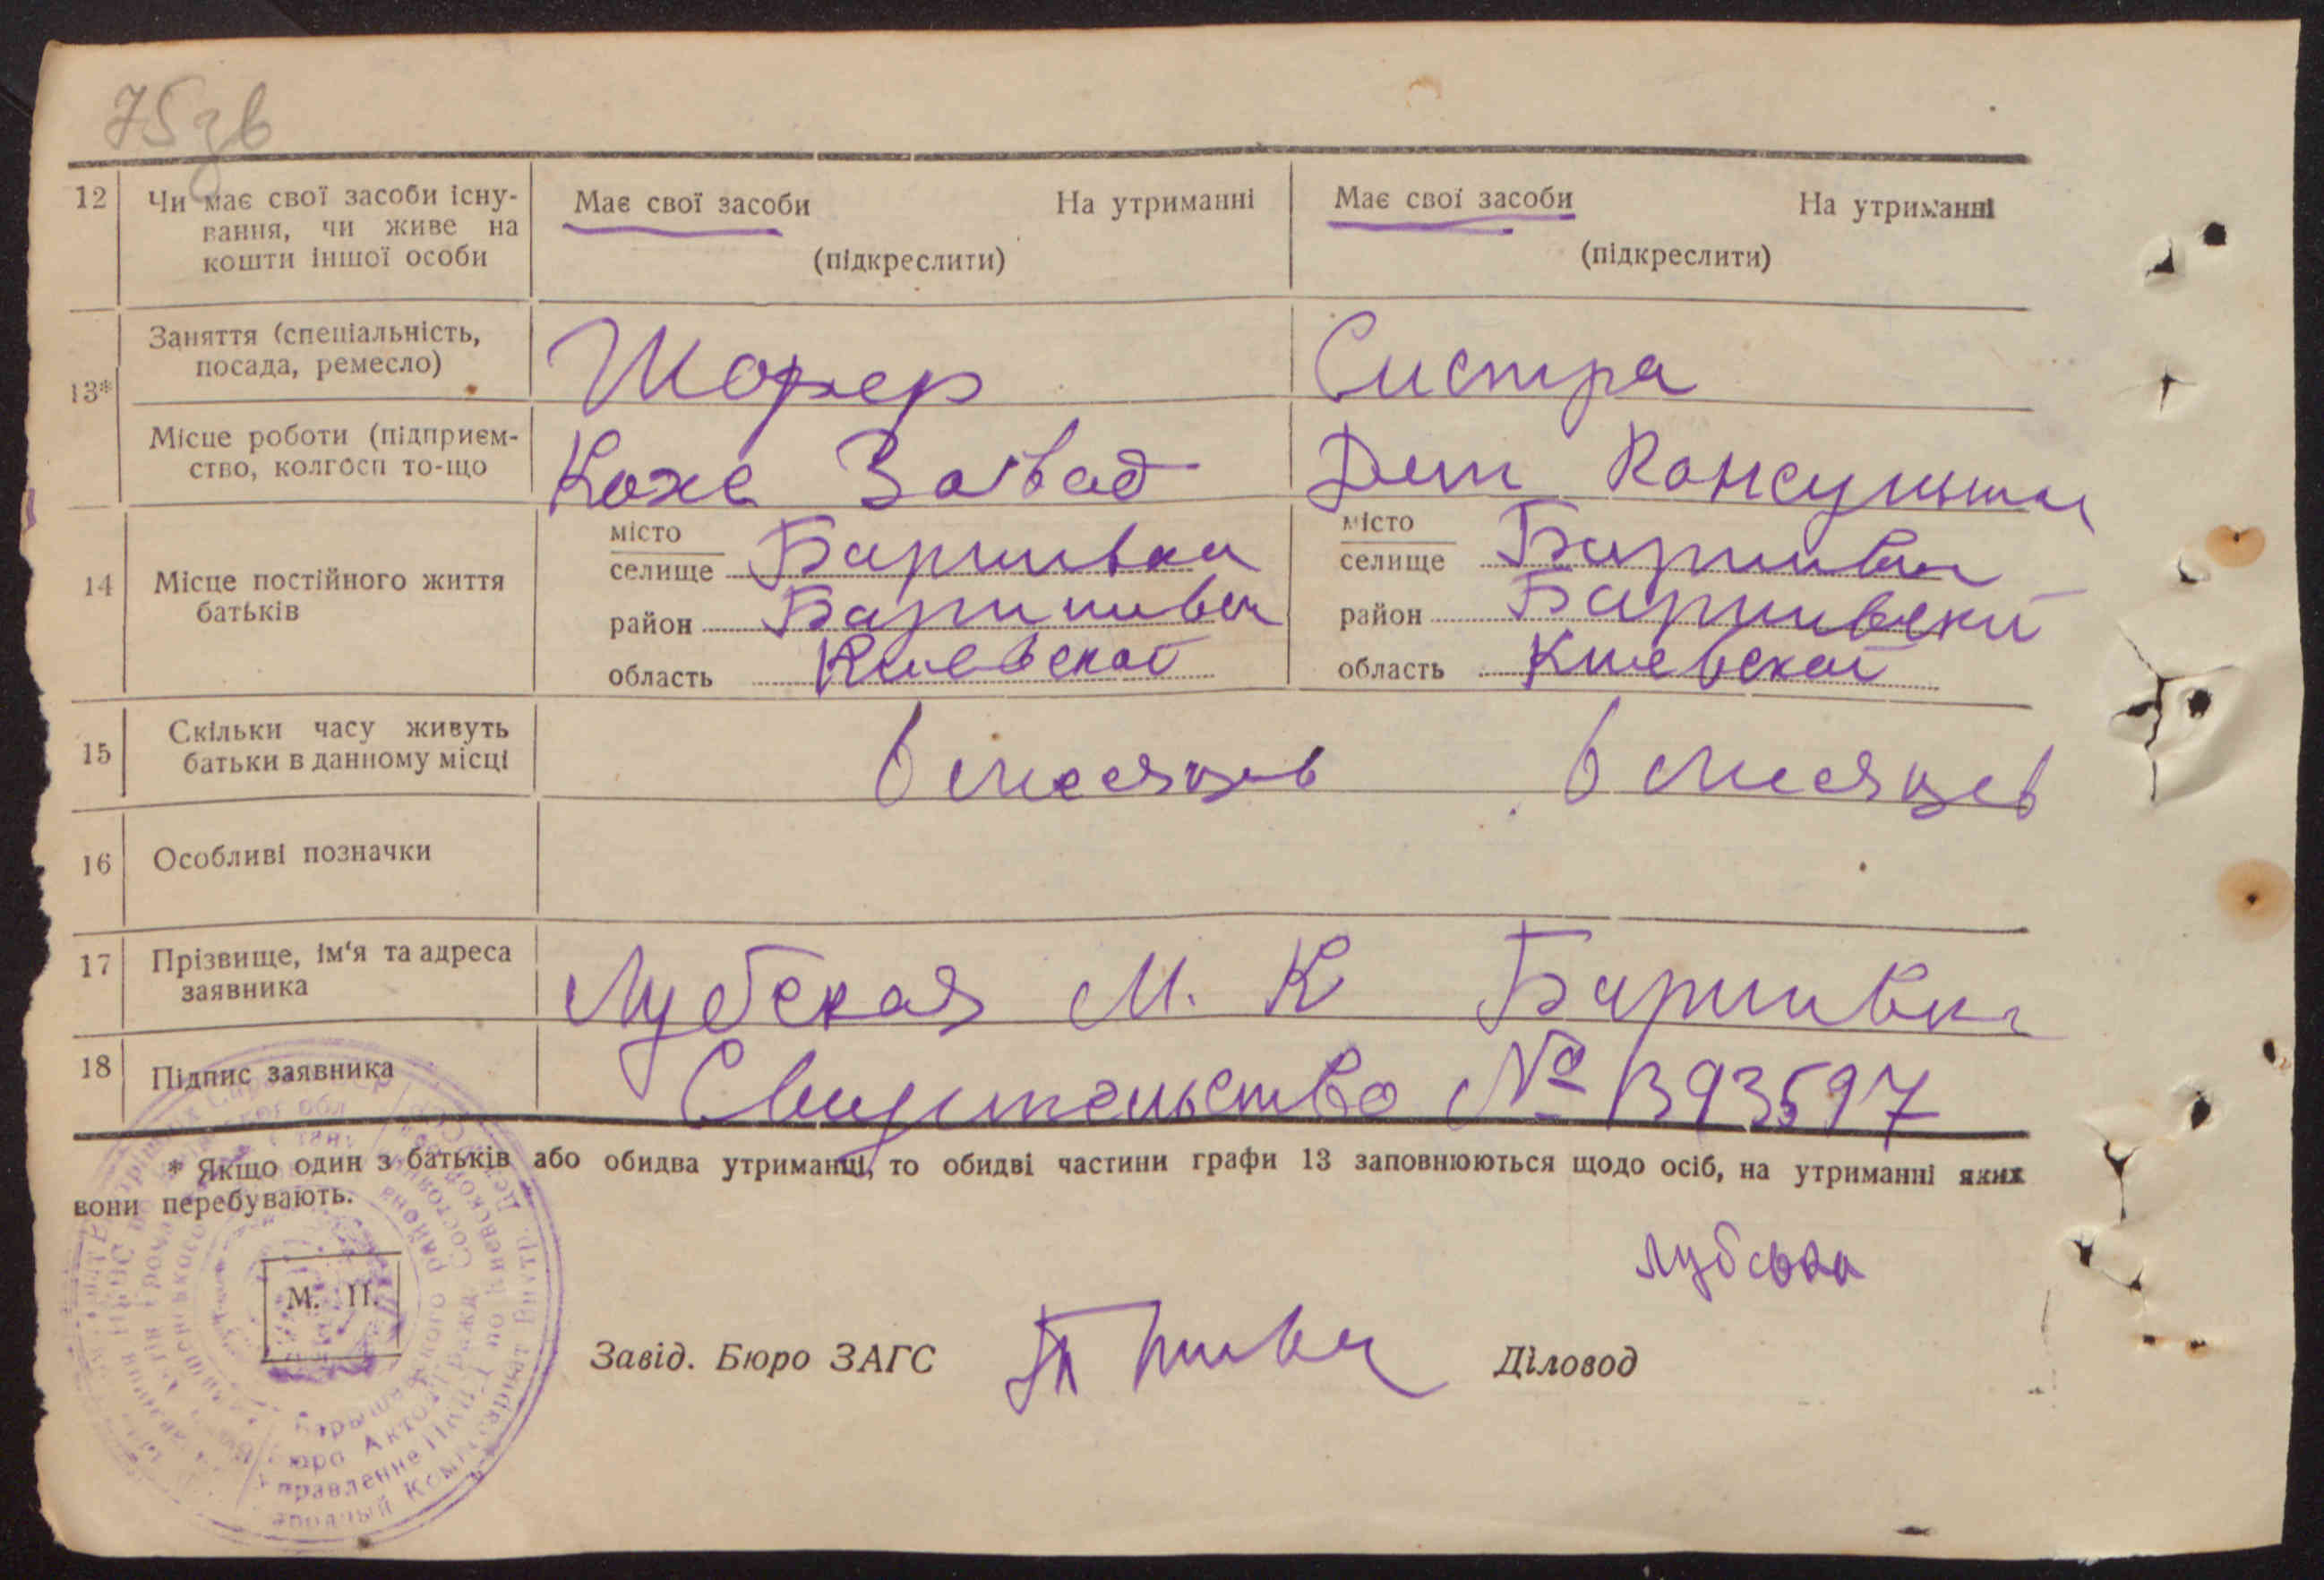 75зв
12 Чи має свої засоби існу-
вання, чи живе на
кошти іншої особи
Має свої засоби На утриманні
(підкреслити)
Має свої засоби На утриманні
(підкреслити)
13*
Заняття (спеціальність,
посада, ремесло)
Шофер
Систра
Місце роботи (підприєм-
ство, колгосп то-що
Коже Завад
Дет Консульта
14 Місце постійного життя
батьків
місто
селище Баришвка
район Баришивск
область Киевской
місто
селище Баришвка
район Баришвский
область Киевской
15 Скільки часу живуть
батьки в данному місці
6 месяцев 6 месяцев
16 Особливі позначки
17 Прізвище, ім'я та адреса
заявника
Лубская М. К Баришвка
18 Підпис заявника
Свидетельство № 1393597
* Якщо один з батьків або обидва утриманці, то обидві частини графи 13 заповнюються щодо осіб, на утриманні яких
вони перебувають.
Лубська
М. П.
Завід. Бюро ЗАГС
Діловод